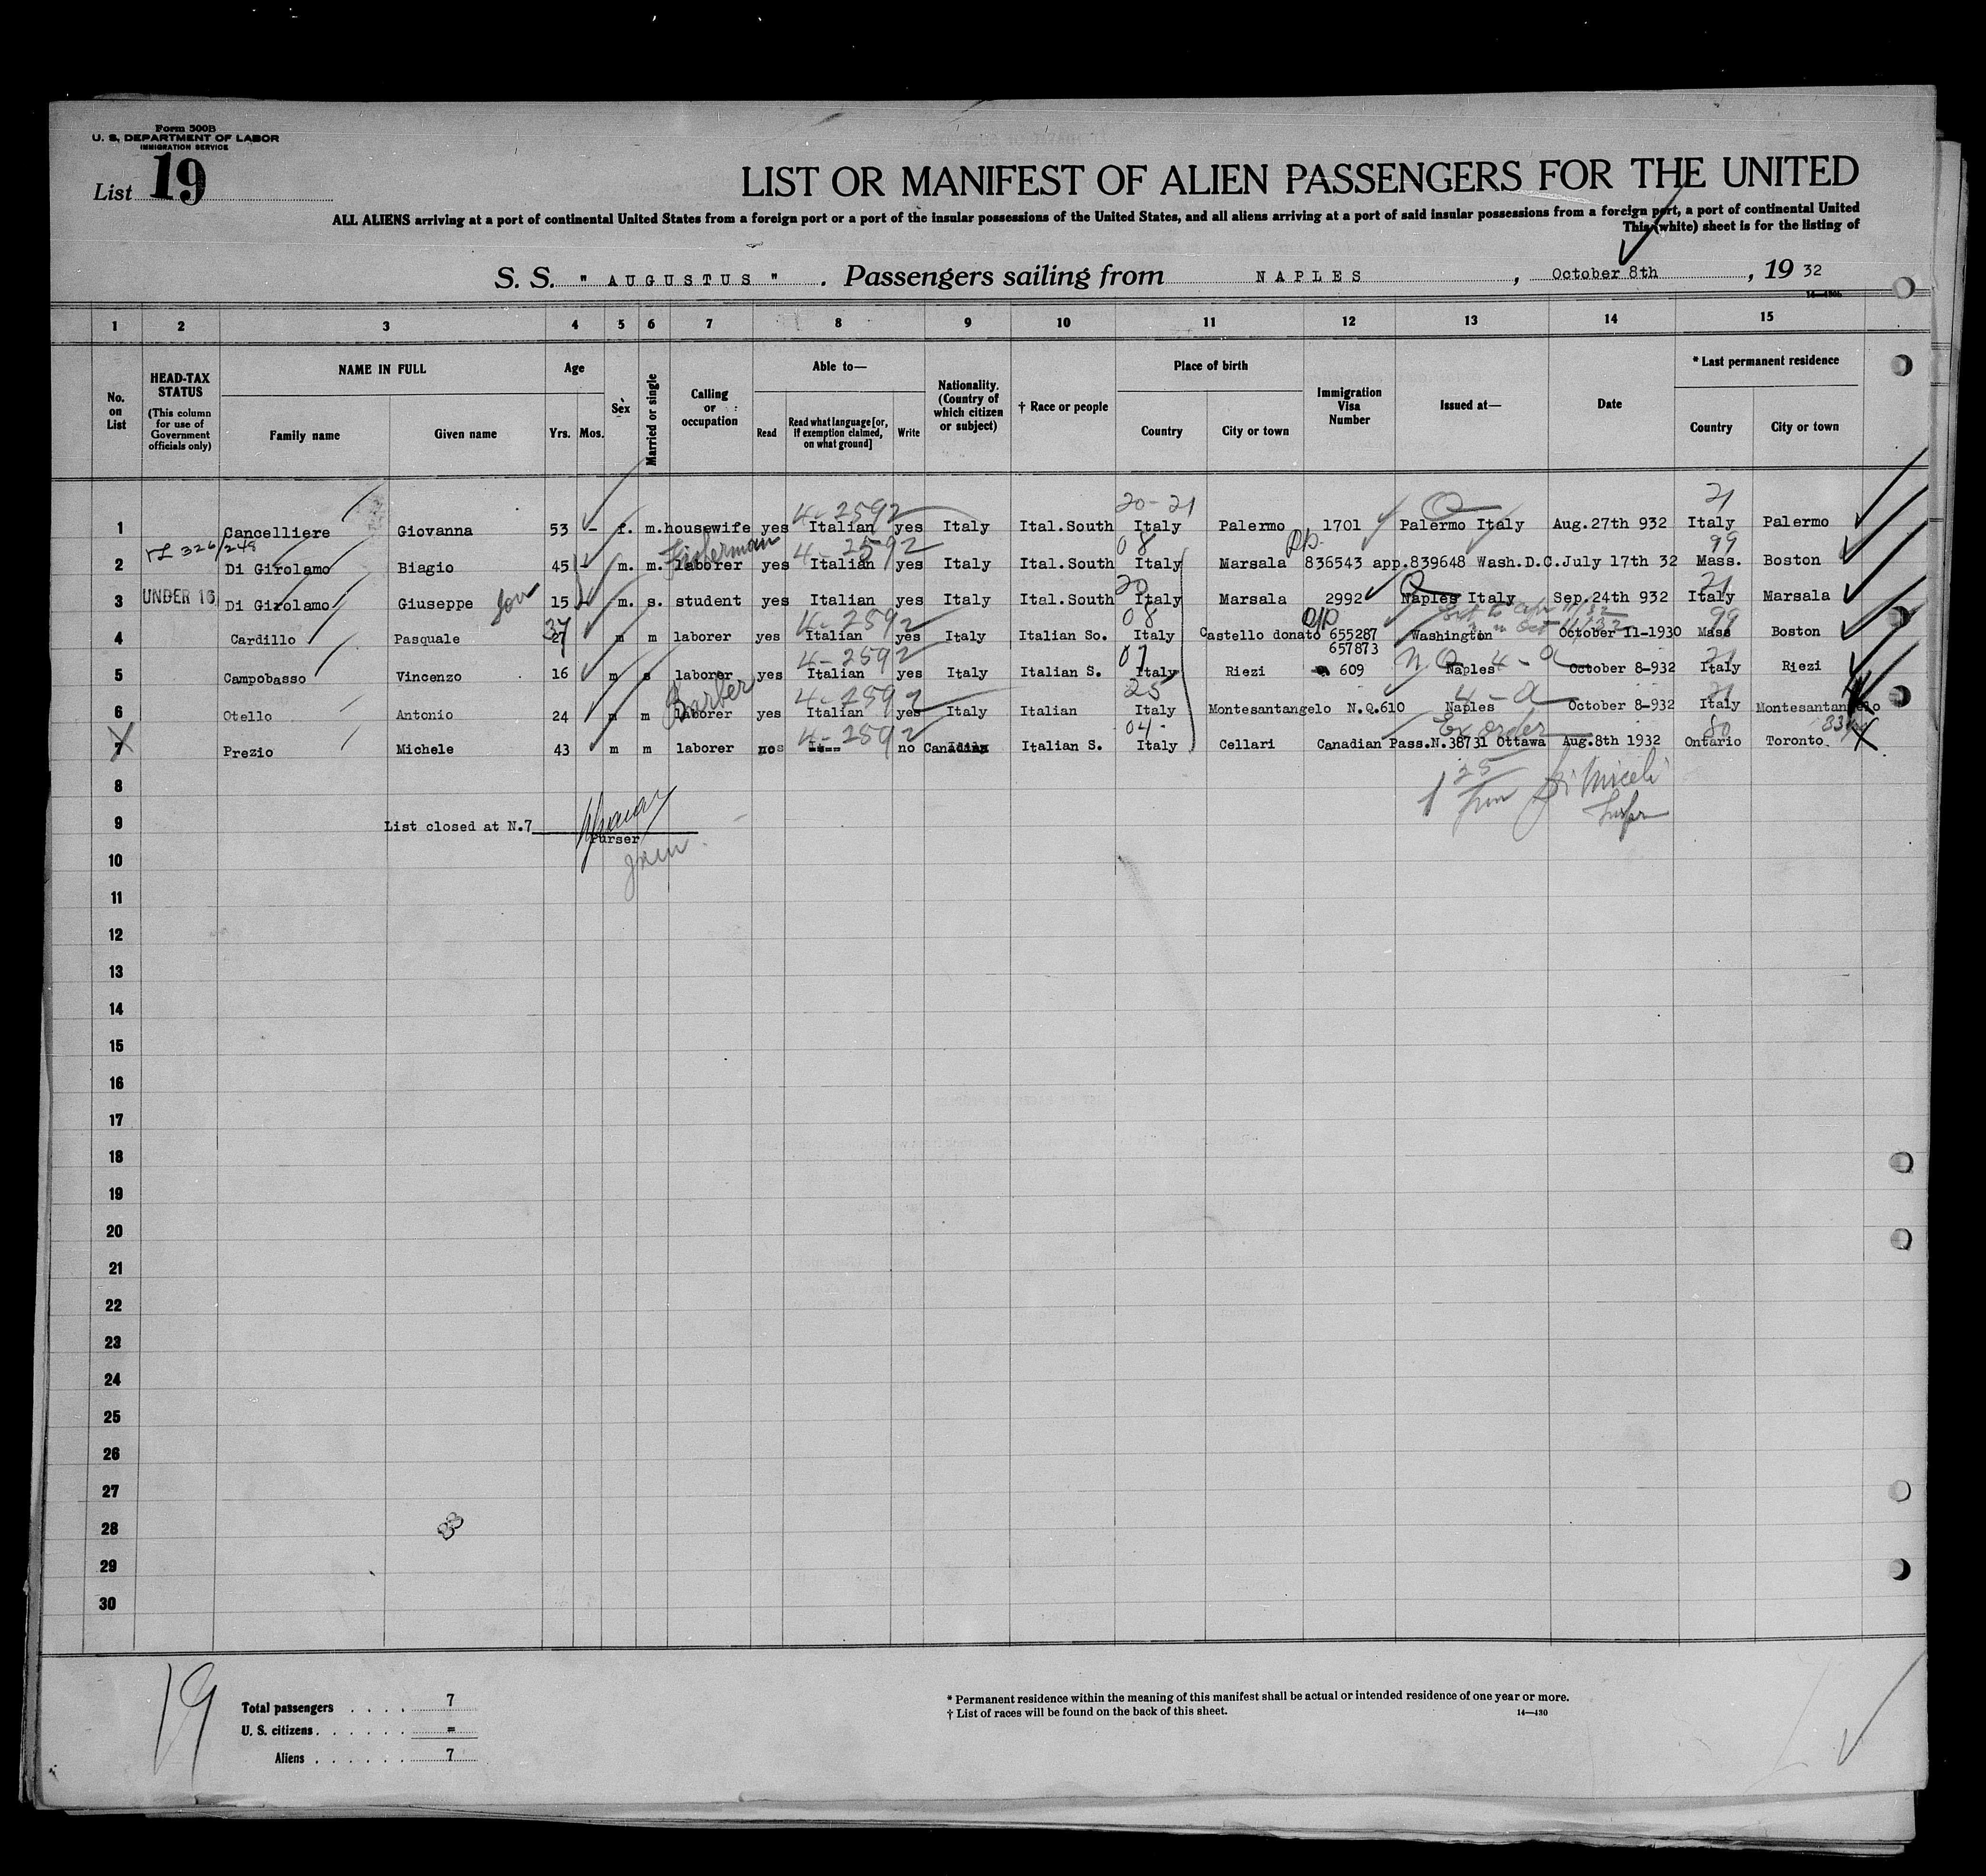 Form 500B
U. S. DEPARTMENT OF LABOR
IMMIGRATION SERVICE
List 19
LIST OR MANIFEST OF ALIEN PASSENGERS FOR THE UNITED
ALL ALIENS arriving at a port of continental United States from a foreign port or a port of the insular possessions of the United States, and all aliens arriving at a port of said insular possessions from a foreign port, a port of continental United
This (white) sheet is for the listing of
S. S. " AUGUSTUS " . Passengers sailing from NAPLES , October 8th , 19 32
14—430b
1 2 3 4 5 6 7 8 9 10 11 12 13 14 15
No. on List
HEAD-TAX STATUS (This column for use of Government officials only)
NAME IN FULL
Family name Given name
Age
Yrs. Mos.
Sex
Married or single
Calling or occupation
Able to—
Read Read what language [or, if exemption claimed, on what ground] Write
Nationality. (Country of which citizen or subject)
† Race or people
Place of birth
Country City or town
Immigration Visa Number
Issued at—
Date
* Last permanent residence
Country City or town
4-2592 20-21 21
1 Cancelliere Giovanna 53 - f. m. housewife yes Italian yes Italy Ital.South Italy Palermo 1701 Palermo Italy Aug.27th 932 Italy Palermo
326/248 Fisherman 4-2592 08 99
2 Di Girolamo Biagio 45 - m. m. laborer yes Italian yes Italy Ital.South Italy Marsala 836543 app.839648 Wash.D.C. July 17th 32 Mass. Boston
20 Q 21
3 UNDER 16 Di Girolamo Giuseppe 15 - m. s. student yes Italian yes Italy Ital.South Italy Marsala 2992 Naples Italy Sep.24th 932 Italy Marsala
37 4-2592 08 99
4 Cardillo Pasquale 27 m m laborer yes Italian yes Italy Italian So. Italy Castello donato 655287 Washington October 11-1930 Mass Boston
657873
4-2592 07 N.Q 4-a 21
5 Campobasso Vincenzo 16 m s laborer yes Italian yes Italy Italian S. Italy Riezi 609 Naples October 8-932 Italy Riezi
Barber 4-2592 25 4-a 21
6 Otello Antonio 24 m m laborer yes Italian yes Italy Italian Italy Montesantangelo N.Q.610 Naples October 8-932 Italy Montesantangelo
4-2592 04 Ex order 80
7 Prezio Michele 43 m m laborer no no Canadian Italian S. Italy Cellari Canadian Pass.N.38731 Ottawa Aug.8th 1932 Ontario Toronto
8
9 List closed at N.7
Purser
10
11
12
13
14
15
16
17
18
19
20
21
22
23
24
25
26
27
28
29
30
19
Total passengers . . . . 7
U. S. citizens . . . . . . =
Aliens . . . . . . 7
* Permanent residence within the meaning of this manifest shall be actual or intended residence of one year or more.
† List of races will be found on the back of this sheet.
14—430